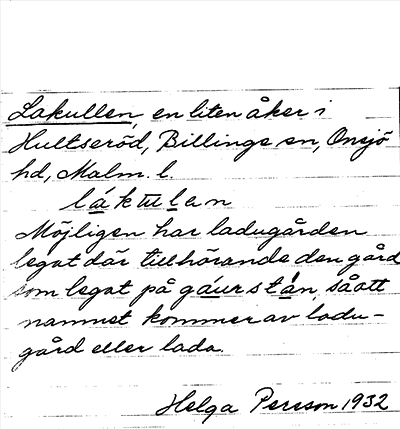 Lakullen, en liten åker i
Hultseröd, Billinge sn, Onsjö
hd, Malm. l.
lákɯlan
Möjligen har ladugården
legat där tillhörande den gård
som legat på gáurstán, såatt
namnet kommer av ladu-
gård eller lada.
Helga Persson 1932